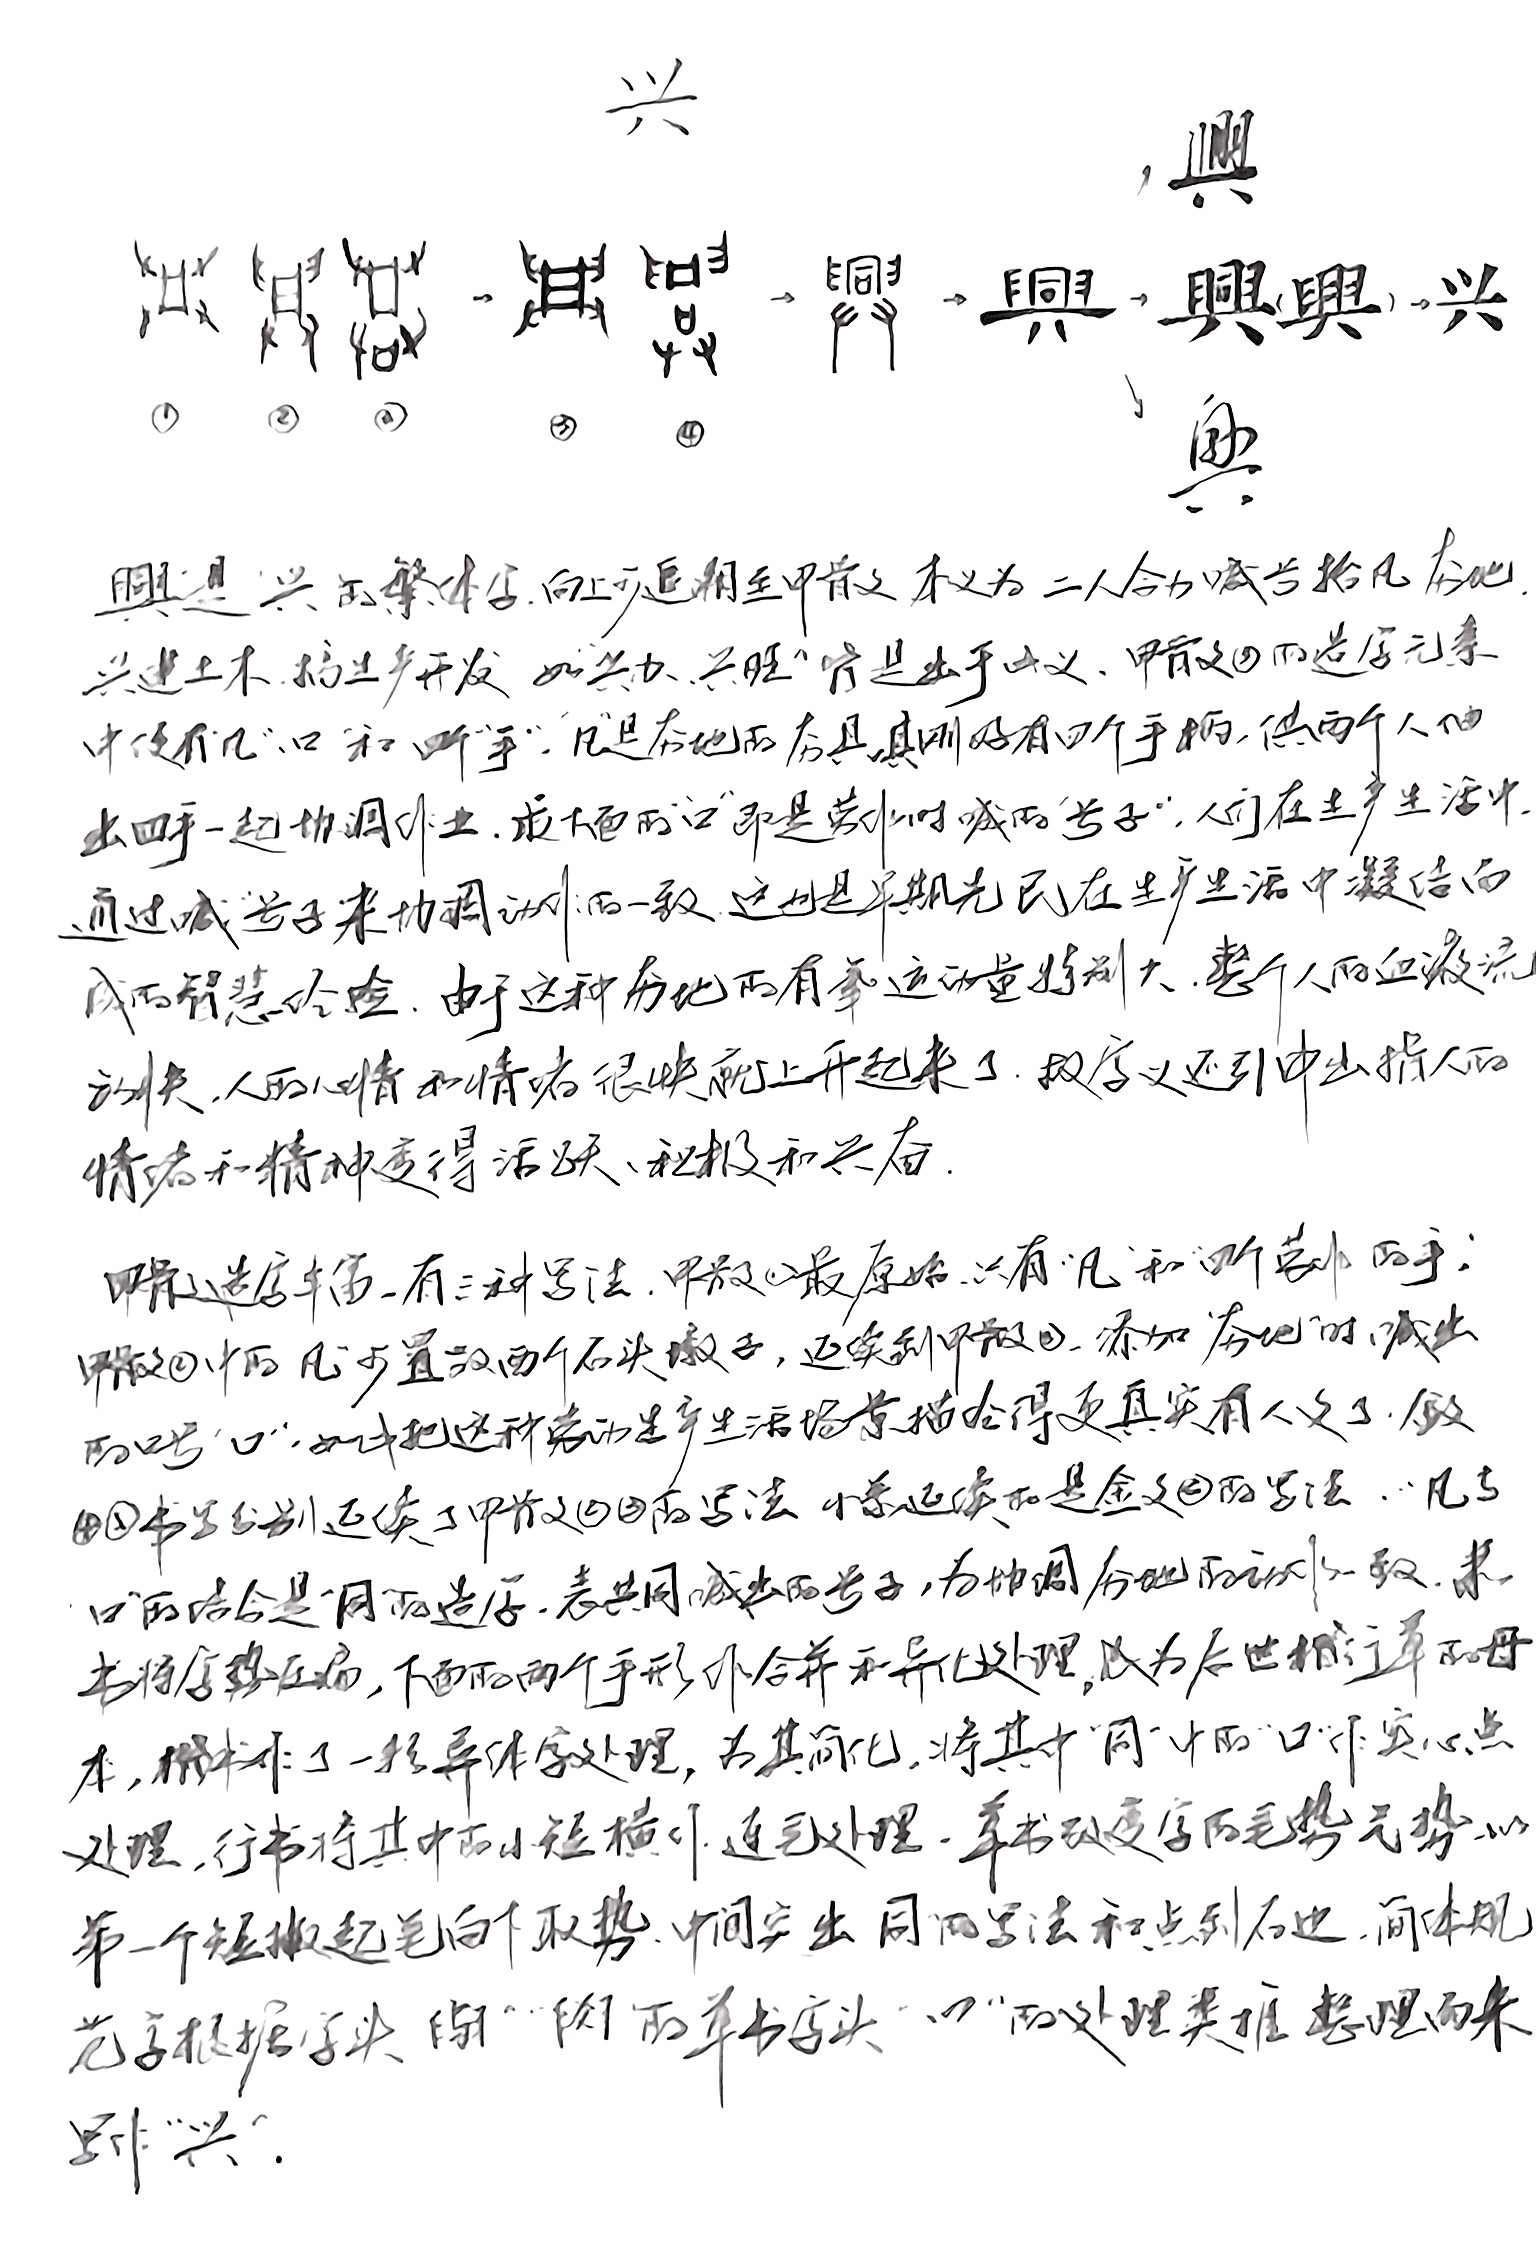 兴
興
→ → → 興 → 興(興) → 兴
① ② ③ ③ ④
興是"兴"的繁体字.向上可追溯至甲骨文 本义为二人合力喊号抬凡夯地.
兴建土木.搞生产开发 如"兴办、兴旺"皆是出于此义.甲骨文③的造字元素
中便有"凡""口"和四个"手".凡是夯地的夯具,其刚好有四个手柄,供两个人伸
出四手一起协调作业.最下面的"口"即是劳作时喊的"号子".人们在生产生活中.
通过喊"号子"来协调动作的一致.这也是早期先民在生产生活中凝结而
成的智慧经验.由于这种夯地的有氧运动量特别大.整个人的血液流
动快.人的心情和情绪很快就上升起来了.故字义还引申出指人的
情绪和精神变得活跃、积极和兴奋.
甲骨文造字丰富.有三种写法.甲骨文①最原始.只有"凡"和四个劳作的手;
甲骨文②中的"凡"少置放两个石头墩子,延续到甲骨文③.添加"夯地"时喊出
的口号"口".如此把这种劳动生产生活场景描绘得更真实有人文了.金文
书写分别延续了甲骨文②③的写法 小篆延续的是金文的写法."凡与
口"的结合是"同"的造字.表共同喊出的号子,为协调夯地的动作一致.隶
书将字势压扁,下面的两个手形作合并和异化处理,成为后世楷行草的母
本,楷书作了一形异体字处理,为其简化,将其中"同"中的"口"作实心点
处理,行书将其中的小短横作连笔处理.草书改变字的笔势元势.以
第一个短撇起笔向下取势.中间突出同的写法和点到右边.简体规
范字根据字头""的草书字头""的处理类推整理而来
写作"兴".